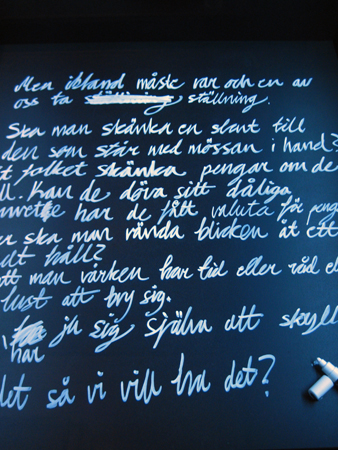 Men ibland måste var och en av
oss ta ställning ställning.
Ska man skänka en slant till
den som står med mössan i hand?
folket skänka pengar om de
Kan de döva sitt dåliga
har de fått valuta för peng
er ska man vända blicken åt ett
håll?
att man varken har tid eller råd el
lust att bry sig.
ju sig själva att skyll
har
det så vi vill ha det?